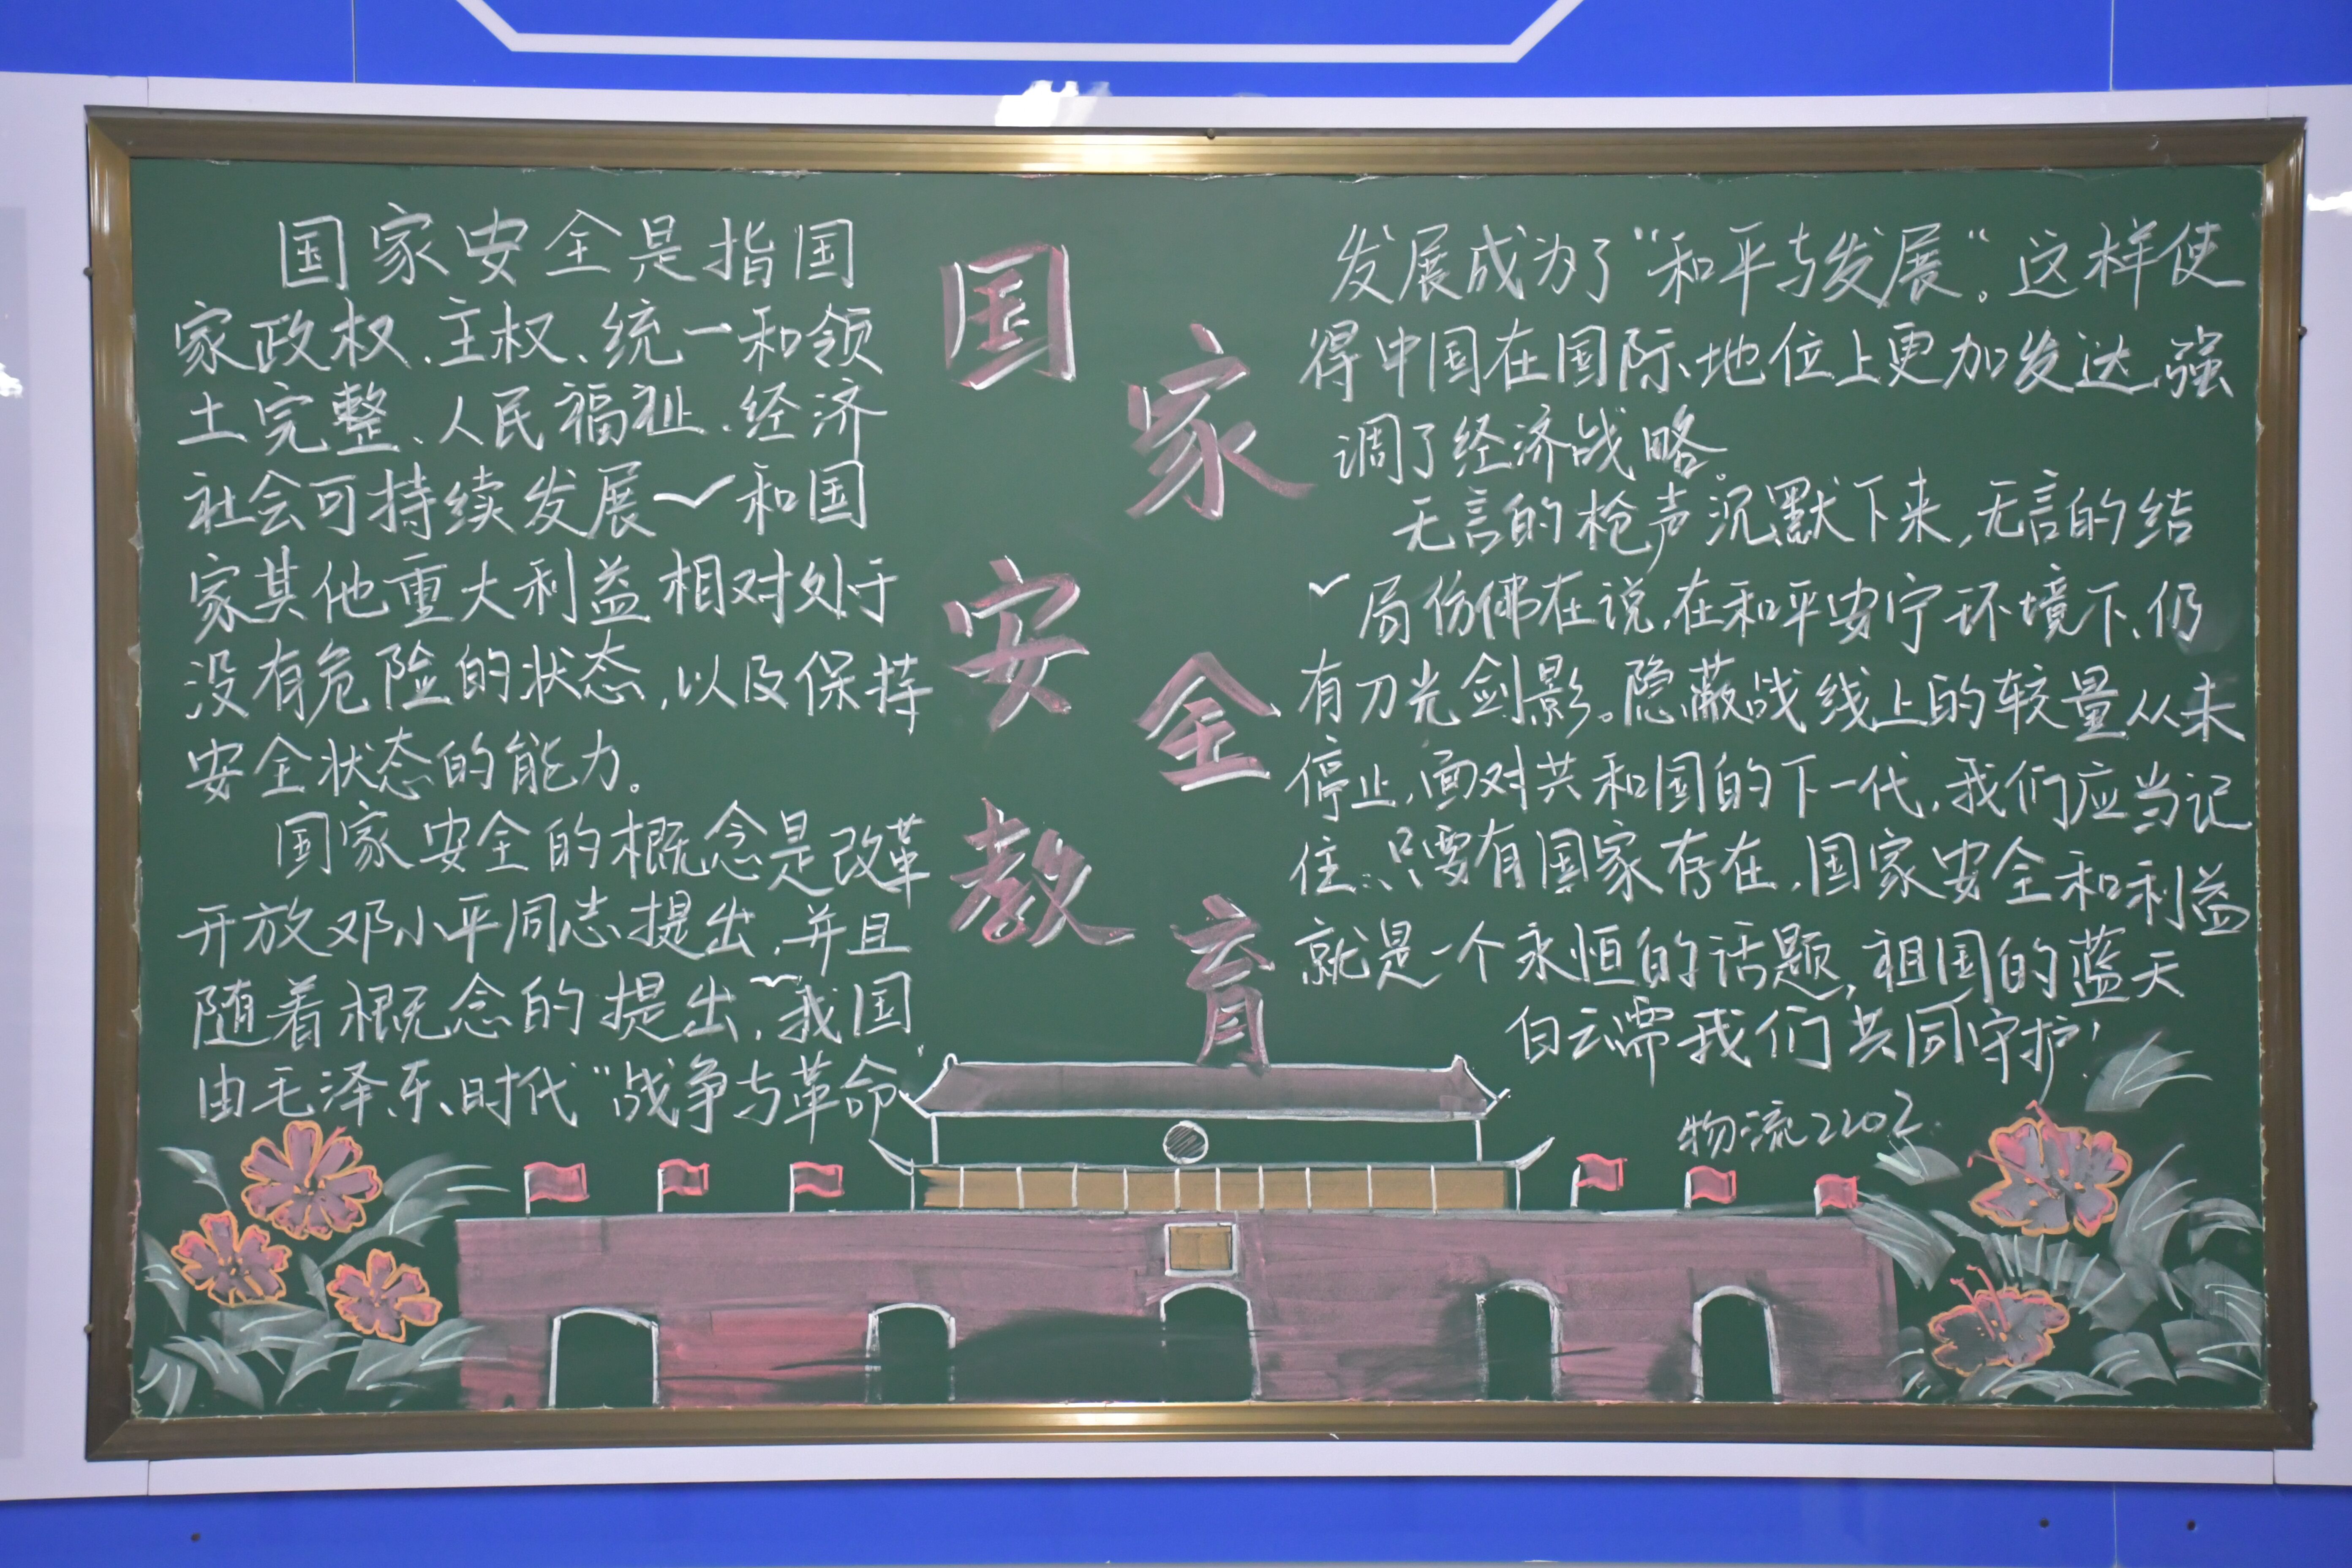 国家安全是指国
家政权、主权、统一和领
土完整、人民福祉、经济
社会可持续发展和国
家其他重大利益相对处于
没有危险的状态，以及保持
安全状态的能力。
国家安全的概念是改革
开放邓小平同志提出，并且
随着概念的提出，我国
由毛泽东时代“战争与革命
国
家
安
全
教
育
发展成为了“和平与发展“。这样使
得中国在国际地位上更加发达，强
调了经济战略。
无言的枪声沉默下来，无言的结
局仿佛在说，在和平安宁环境下，仍
有刀光剑影。隐蔽战线上的较量从未
停止，面对共和国的下一代，我们应当记
住：只要有国家存在，国家安全和利益
就是一个永恒的话题，祖国的蓝天
白云需我们共同守护！
物流2202